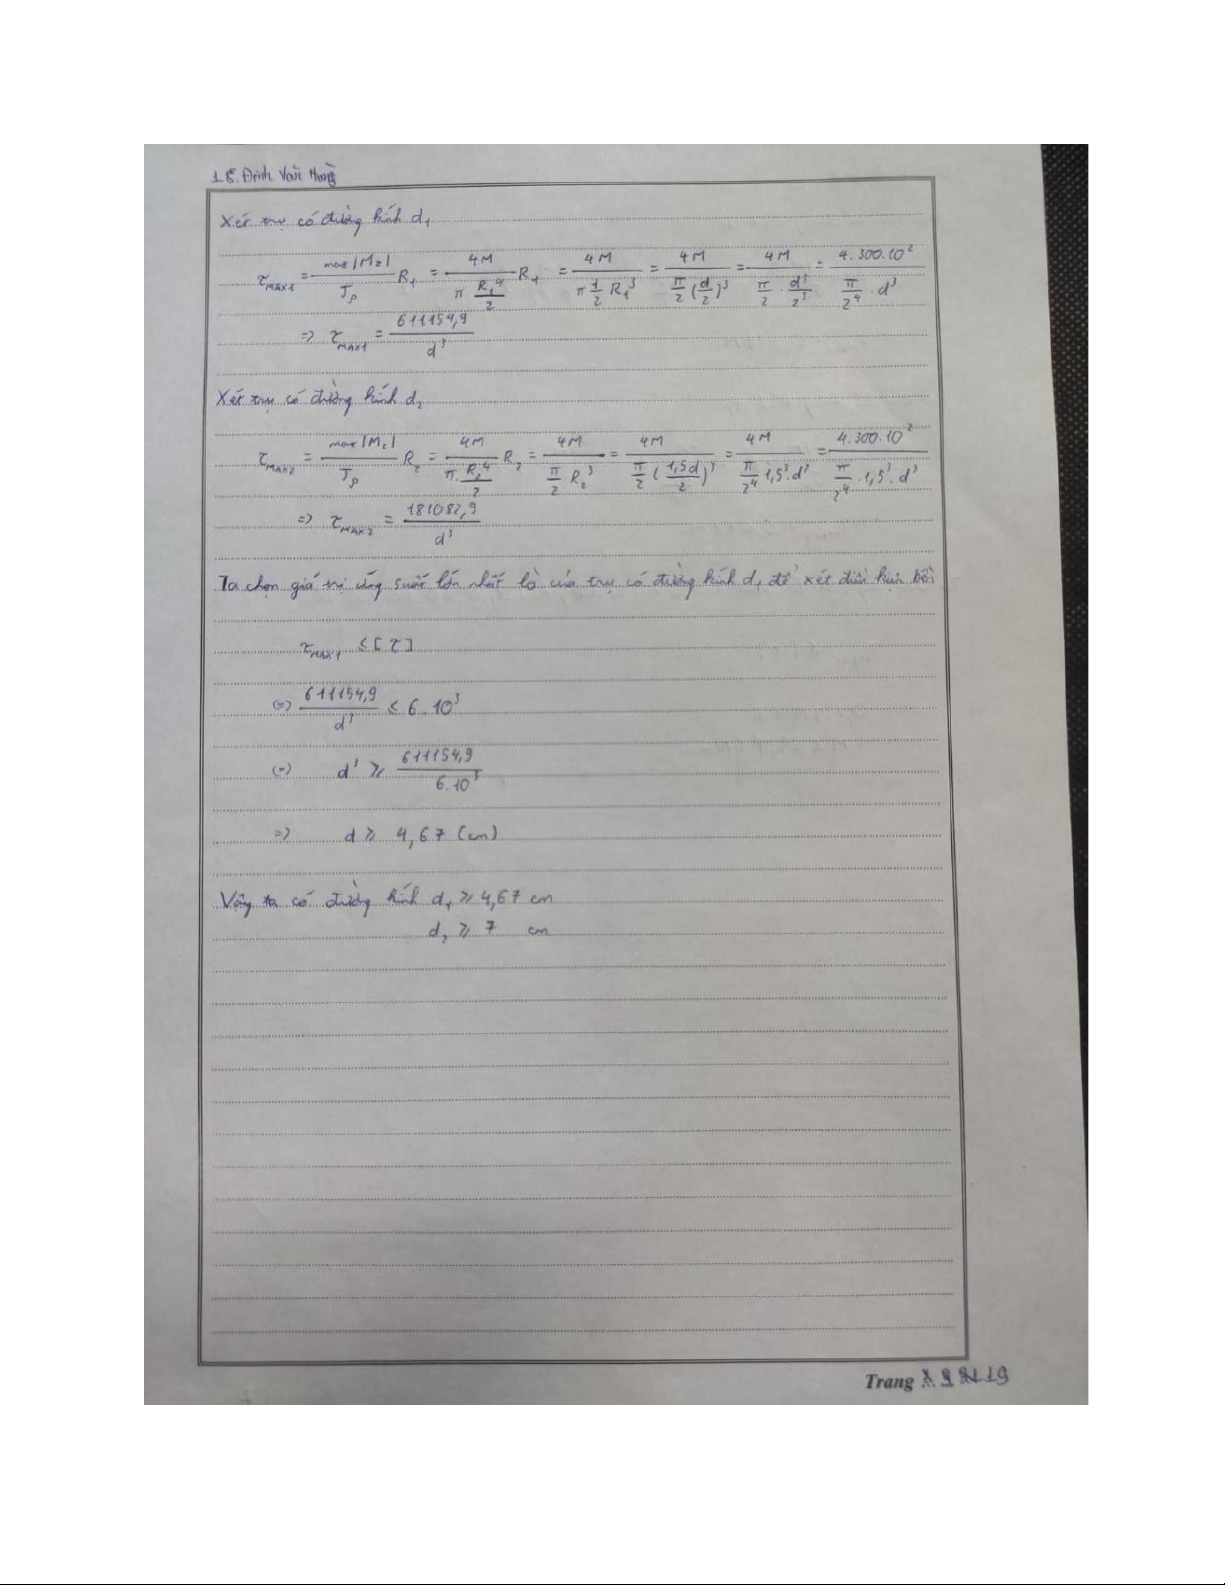 18. Đinh Văn Hưng
Xét trục có đường kính d₁
τMAX1 = max|Mz|/Jρ R₁ = 4M/(π R₁⁴/2) R₁ = 4M/(π 1/2 R₁³) = 4M/(π/2 (d/2)³) = 4M/(π/2 · d³/2³) = 4.300.10²/(π/2⁴ · d³)
=> τMAX1 = 611154,9/d³
Xét trục có đường kính d₂
τMAX2 = max|Mz|/Jρ R₂ = 4M/(π · R₂⁴/2) R₂ = 4M/(π/2 R₂³) = 4M/(π/2 (1,5d/2)³) = 4M/(π/2⁴ 1,5³.d³) = 4.300.10²/(π/2⁴ · 1,5³. d³)
=> τMAX2 = 181082,9/d³
Ta chọn giá trị ứng suất lớn nhất là của trục có đường kính d₁ để xét điều kiện bền
τMAX1 ≤ [τ]
(=) 611154,9/d³ ≤ 6.10³
(=) d³ ≥ 611154,9/6.10³
=> d ≥ 4,67 (cm)
Vậy ta có đường kính d₁ ≥ 4,67 cm
d₂ ≥ 7 cm
Trang 19